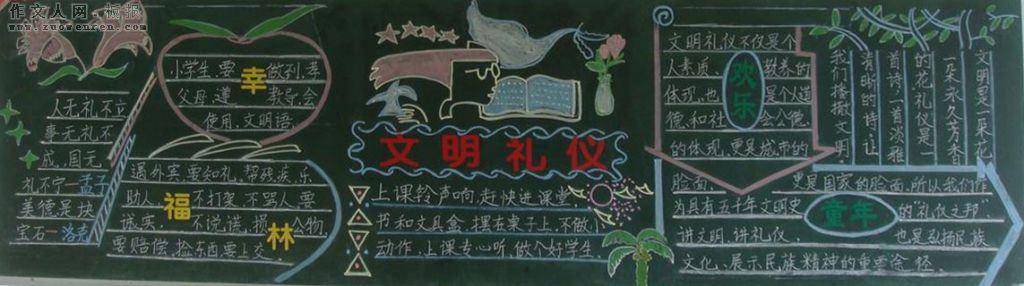 作文人网·板报
www.zuowenren.com
人无礼不立
事无礼不
成,国无
礼不宁—孟子
美德是块
宝石—洛克
小学生要 做到,孝
父母,道 教导,会
使用,文明语
幸
遇外宾,要知礼,帮残疾,乐
助人, 不打架,不骂人,要
诚实, 不说谎,损 公物,
要赔偿,捡东西,要上交。
福
林
文明礼仪
上课铃声响,赶快进课堂,
书和文具盒,摆在桌子上,不做小
动作,上课专心听,做个好学生。
文明礼仪不仅是个
人素质、 教养的
体现,也 是个人道
德和社 会公德
的体现,更是城市的
脸面, 更是国家的脸面,所以我们作
为具有五千年文明史 的“礼仪之邦”
讲文明、讲礼仪, 也是弘扬民族
文化、展示民族精神的重要途径。
欢乐
童年
文明是一朵花
一朵永久芳香
的花,礼仪是
首诗,一首淡雅
清晰的诗,让
我们播撒文明